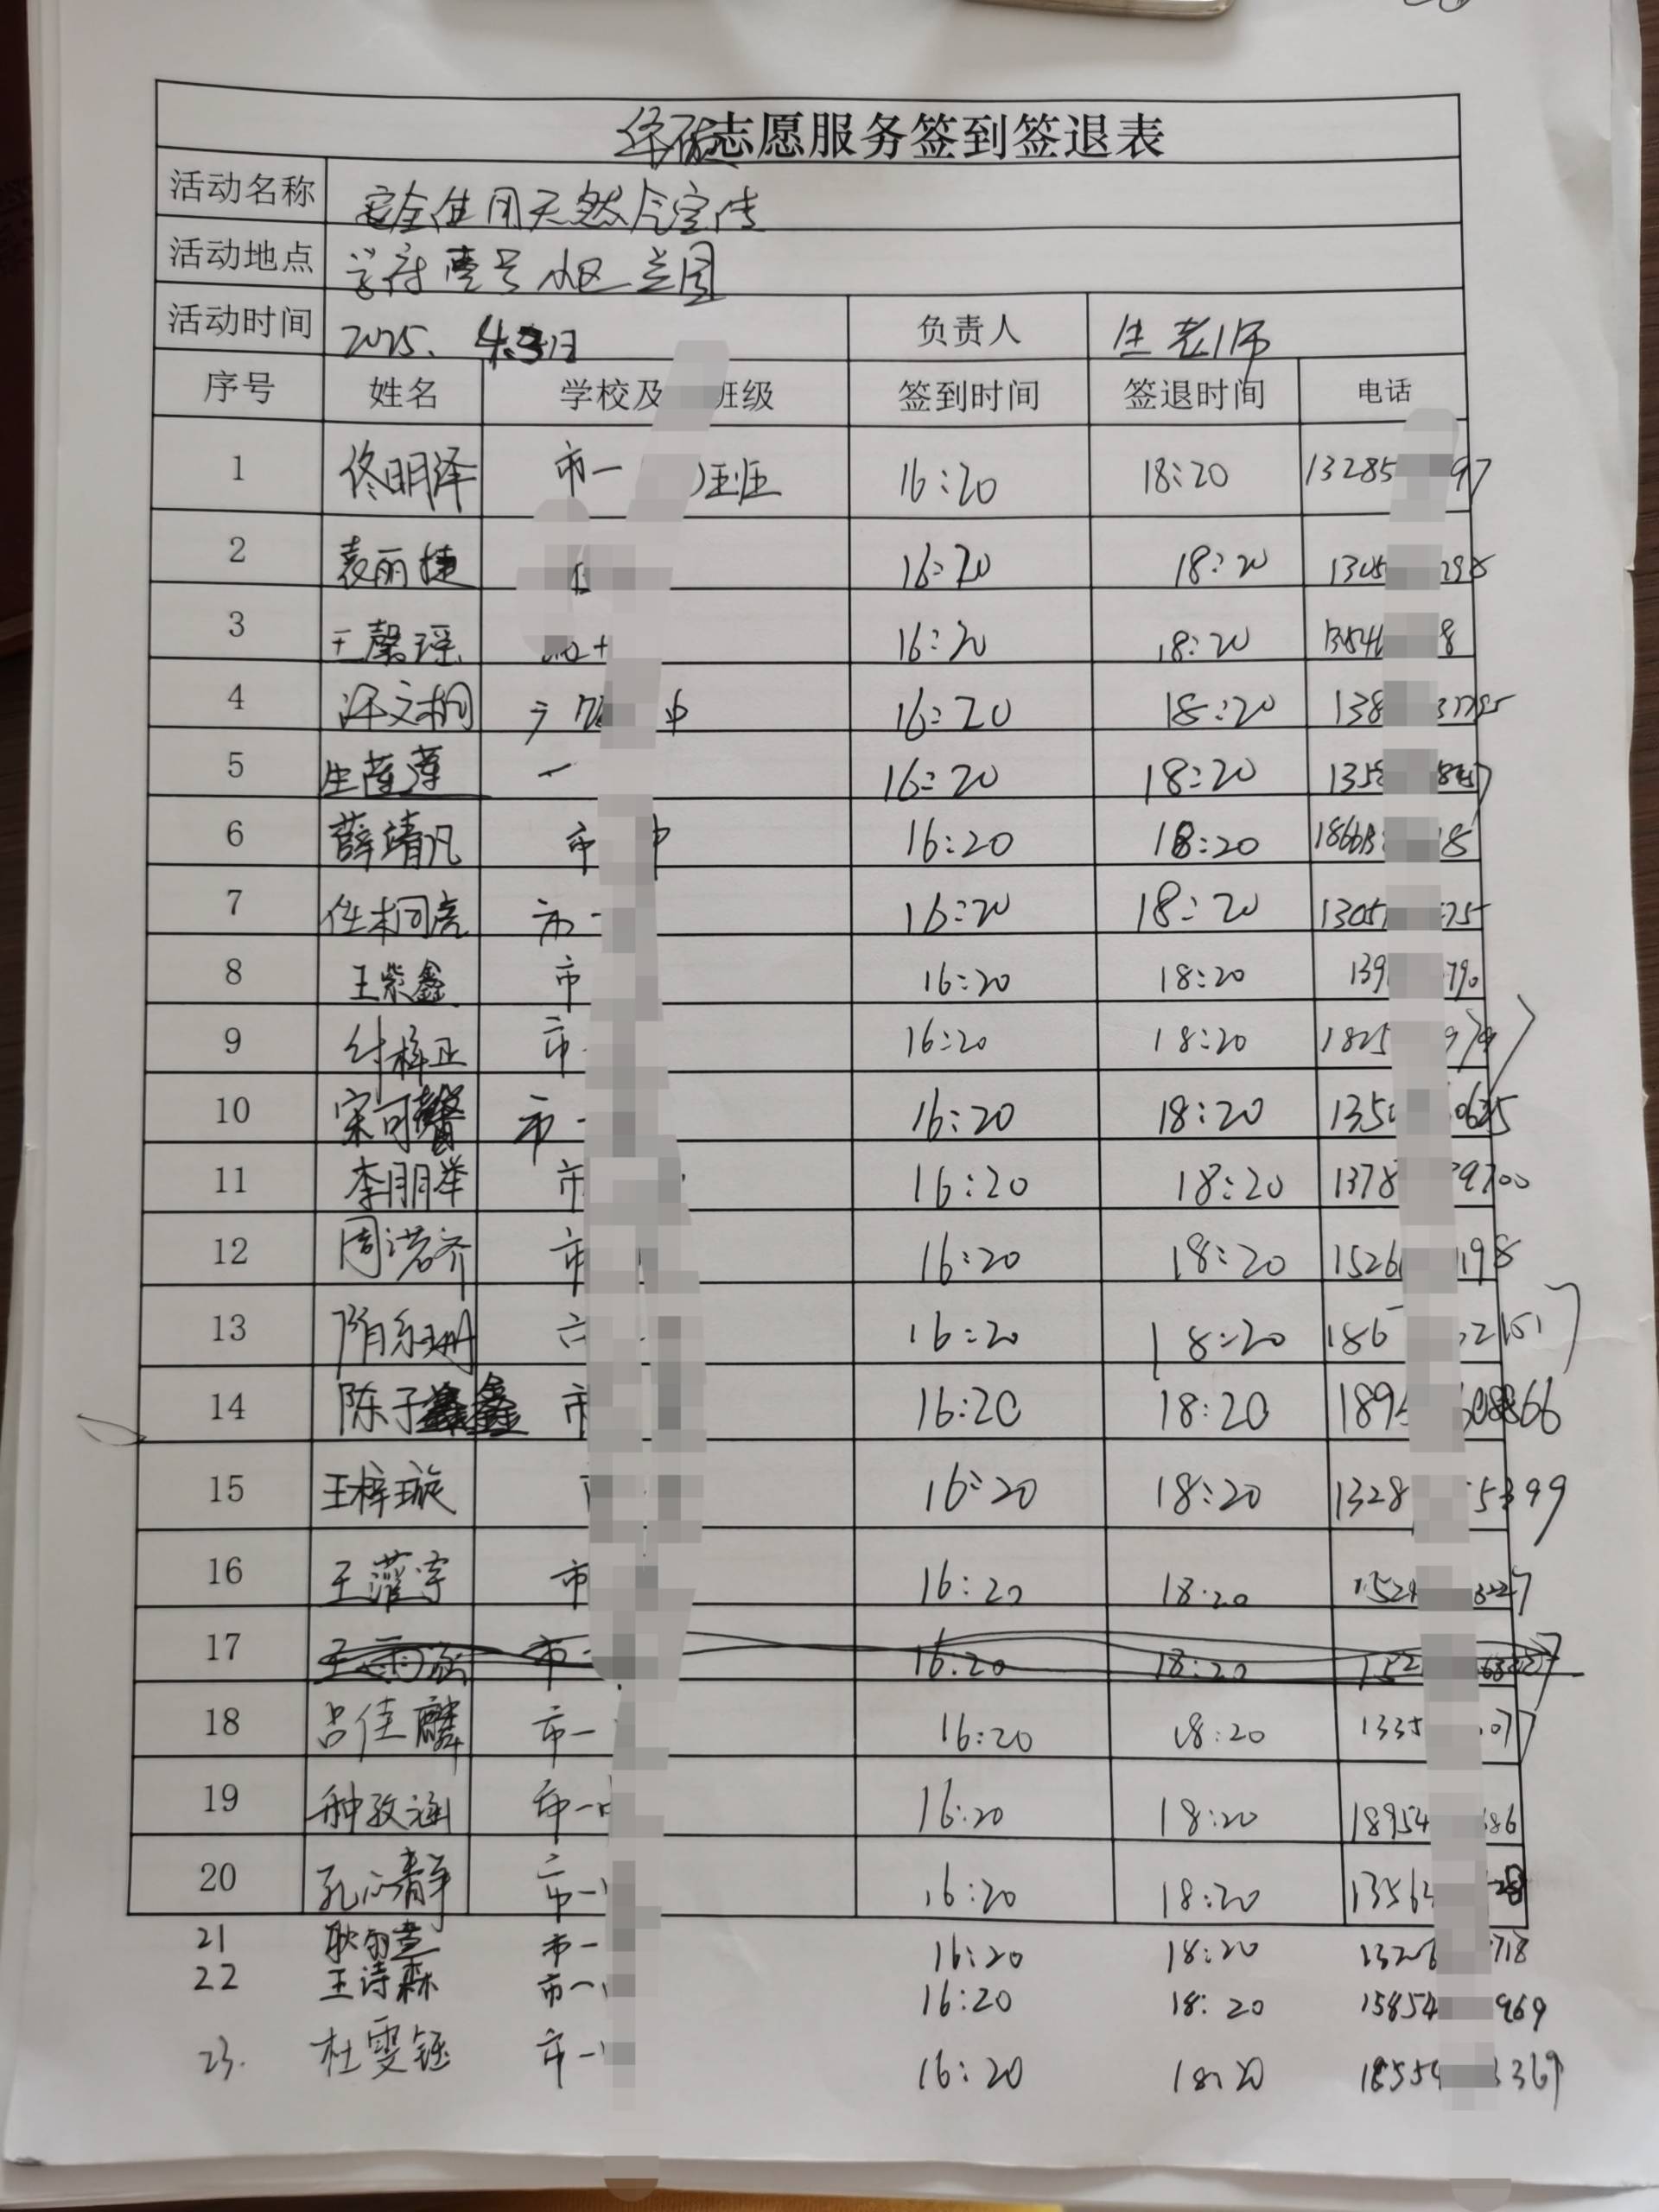 志愿服务签到签退表
活动名称 安全使用天然气宣传
活动地点 学府壹号小区兰园
活动时间 2025. 4. 负责人 生老师
序号 姓名 学校及 班级 签到时间 签退时间 电话
1 佟明泽 市一 班 16:20 18:20 13285 97
2 袁丽捷 16:20 18:20 1305 298
3 王馨瑶 16:20 18:20 13546 8
4 16:20 18:20 138 37795
5 一 16:20 18:20 1358
6 薛靖凡 市 中 16:20 18:20 1866 8
7 任桐亮 市一 16:20 18:20 1305 75
8 王紫鑫 市 16:20 18:20 139 790
9 付梓正 市 16:20 18:20 1825 979
10 宋可馨 市一 16:20 18:20 1350 0635
11 李朋举 市 16:20 18:20 1378 9700
12 周诺齐 市 16:20 18:20 1526 198
13 隋 16:20 18:20 186 2151
14 陈子鑫 市 16:20 18:20 189 08866
15 王梓璇 16:20 18:20 1328 5399
16 王 宇 市 16:20 18:20 1524 3227
17 王雨 市 16:20 18:20 152
18 吕佳麟 市一 16:20 18:20 1335 077
19 种孜涵 市一 16:20 18:20 18954 686
20 孔心静 市一 16:20 18:20 13564 28
21 耿 市一 16:20 18:20 1326 718
22 王诗霖 市一 16:20 18:20 15854 969
23. 杜雯钰 市一 16:20 18:20 18554 3369